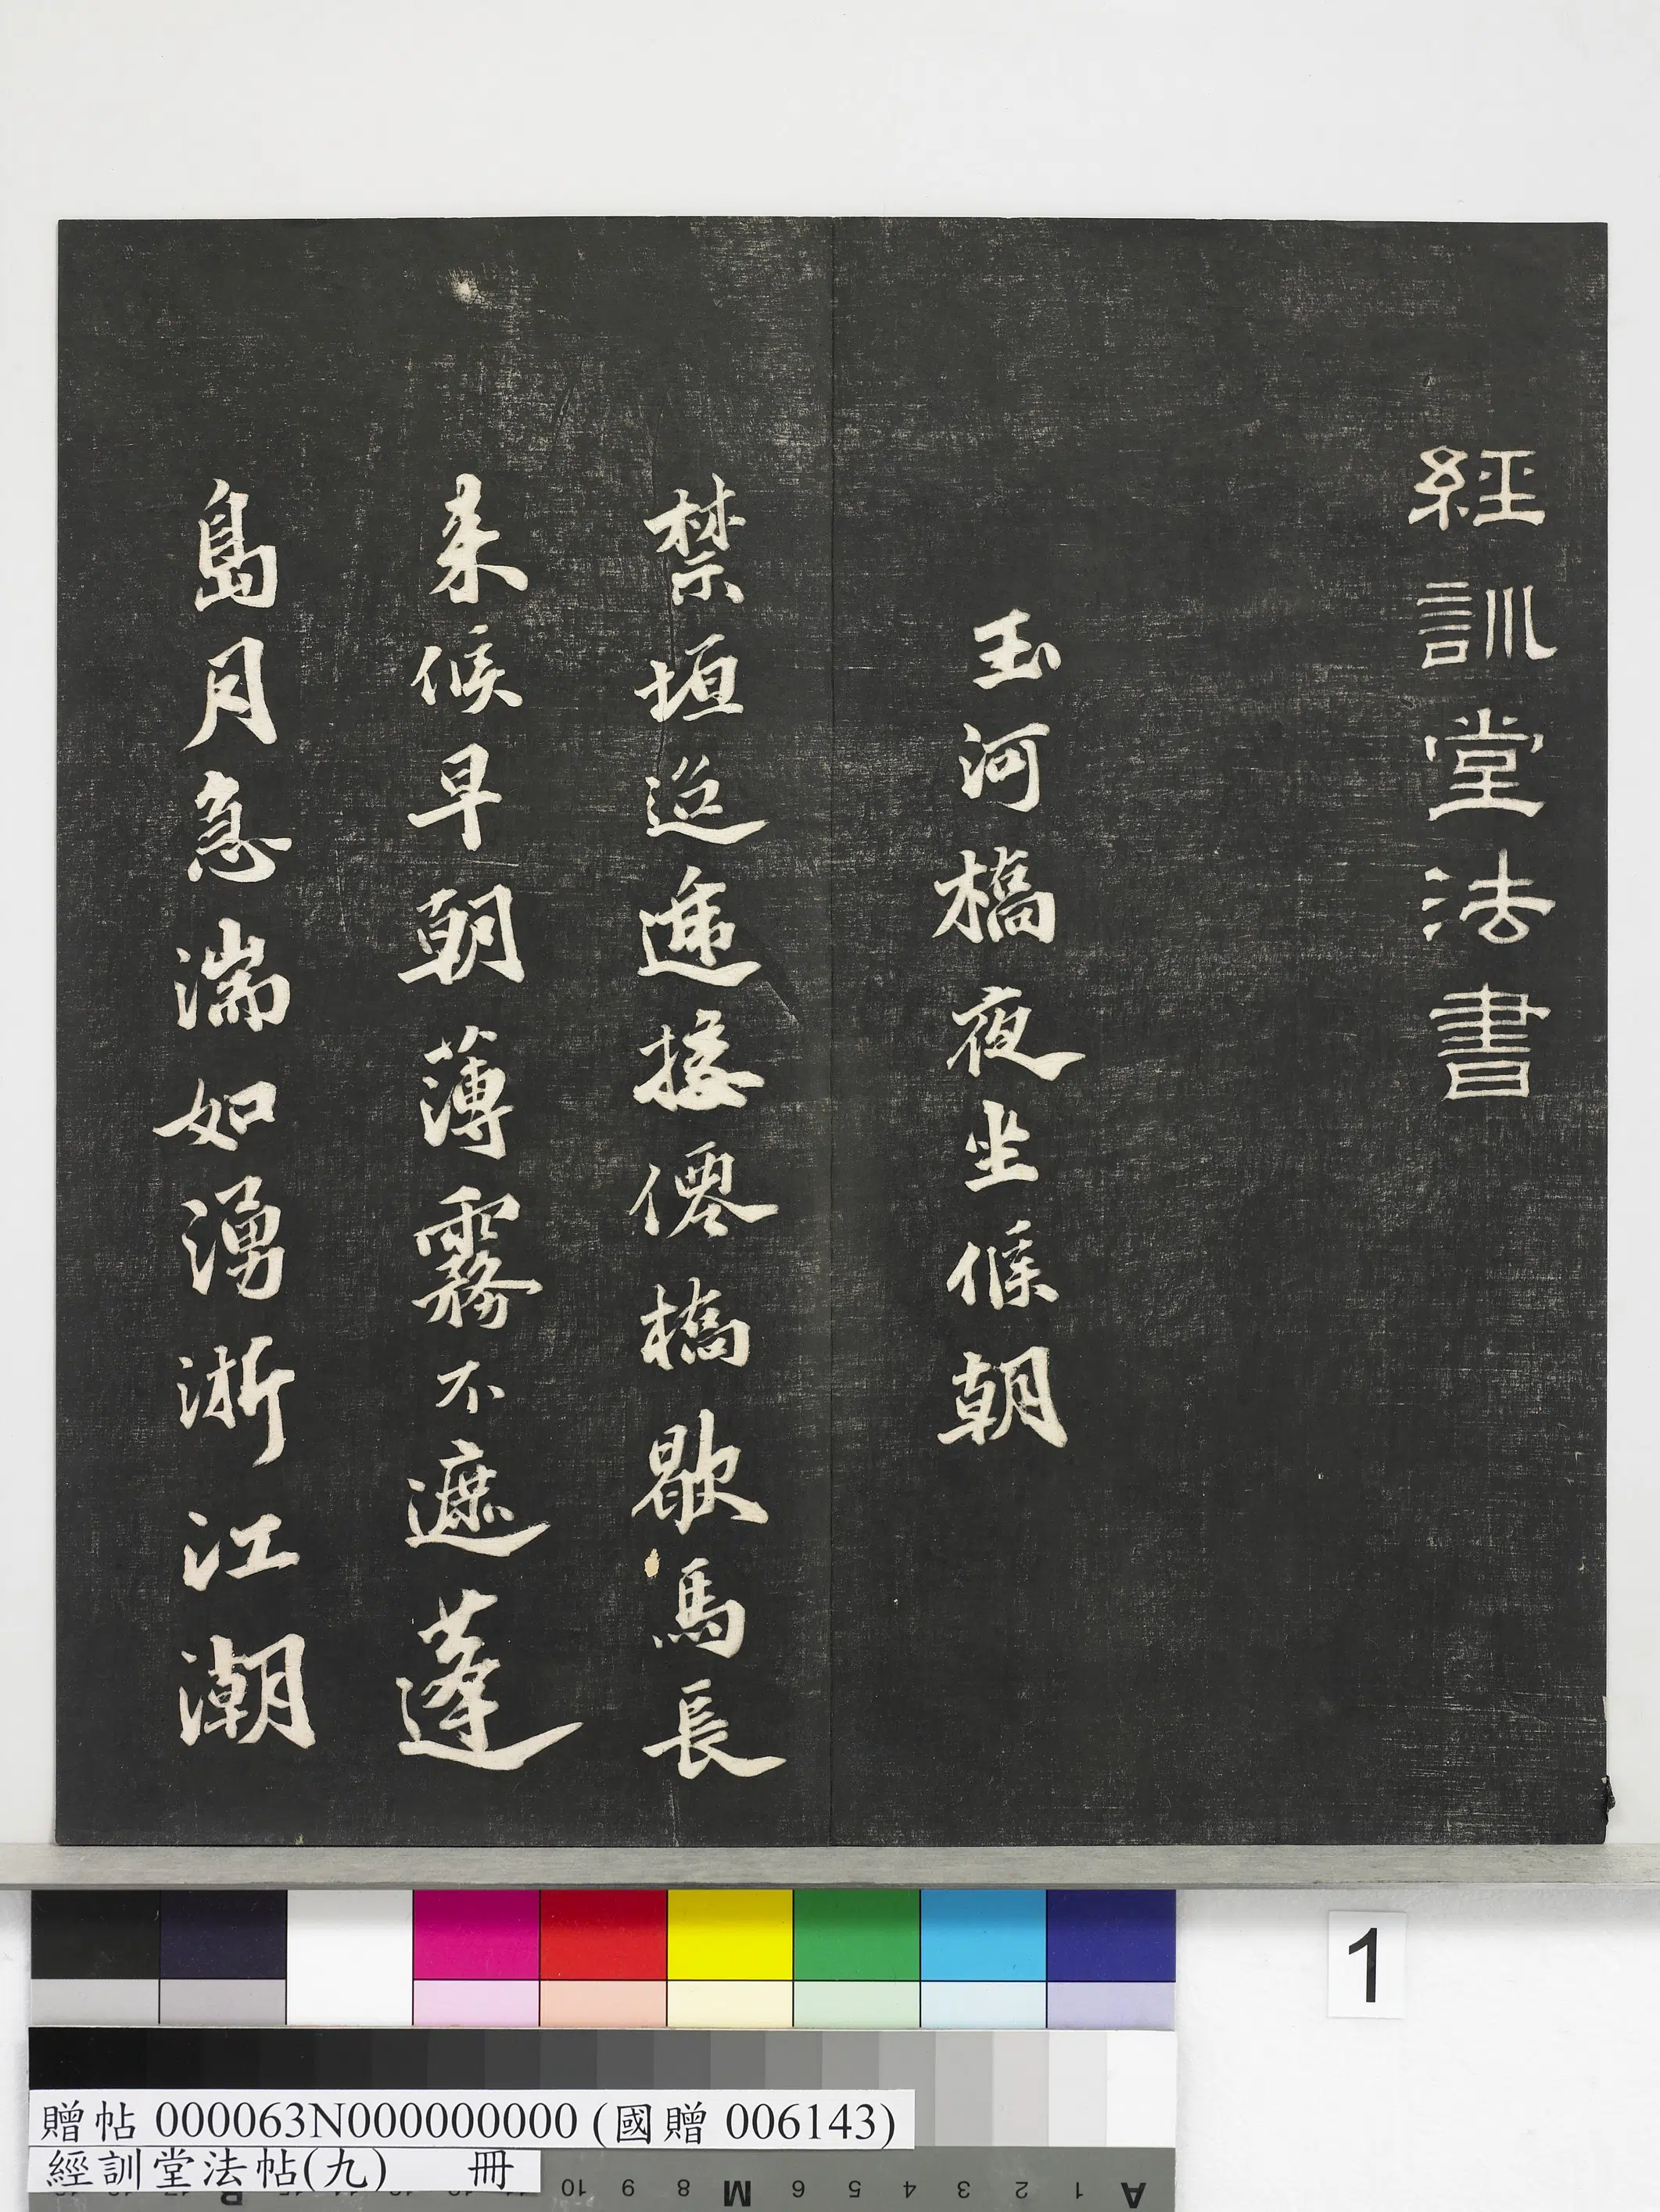 經訓堂法書
玉河橋夜坐候朝
禁垣迢遞接僊橋歇馬長
来候早朝薄霧不遮蓬
島月急湍如湧浙江潮
1
贈帖 000063N000000000 (國贈 006143)
經訓堂法帖(九) 冊
10 9 8 M 6 5 4 3 2 1 A